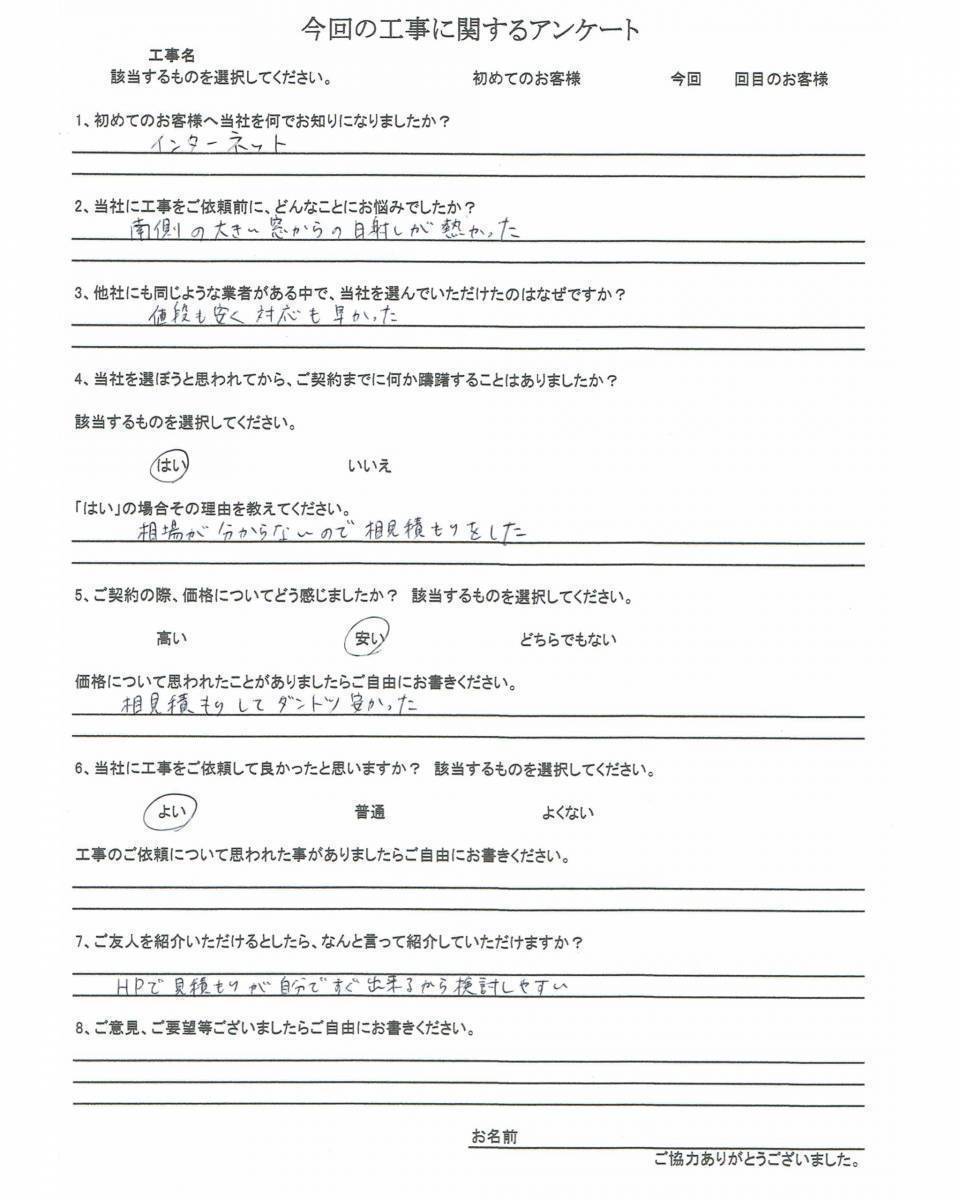 今回の工事に関するアンケート
工事名
該当するものを選択してください。 初めてのお客様 今回 回目のお客様
1、初めてのお客様へ当社を何でお知りになりましたか？
インターネット
2、当社に工事をご依頼前に、どんなことにお悩みでしたか？
南側の大きい窓からの日射しが熱かった
3、他社にも同じような業者がある中で、当社を選んでいただけたのはなぜですか？
値段も安く対応も早かった
4、当社を選ぼうと思われてから、ご契約までに何か躊躇することはありましたか？
該当するものを選択してください。
はい いいえ
「はい」の場合その理由を教えてください。
相場が分からないので相見積もりをした
5、ご契約の際、価格についてどう感じましたか？ 該当するものを選択してください。
高い 安い どちらでもない
価格について思われたことがありましたらご自由にお書きください。
相見積もりしてダントツ安かった
6、当社に工事をご依頼して良かったと思いますか？ 該当するものを選択してください。
よい 普通 よくない
工事のご依頼について思われた事がありましたらご自由にお書きください。
7、ご友人を紹介いただけるとしたら、なんと言って紹介していただけますか？
HPで見積もりが自分ですぐ出来るから検討しやすい
8、ご意見、ご要望等ございましたらご自由にお書きください。
お名前
ご協力ありがとうございました。